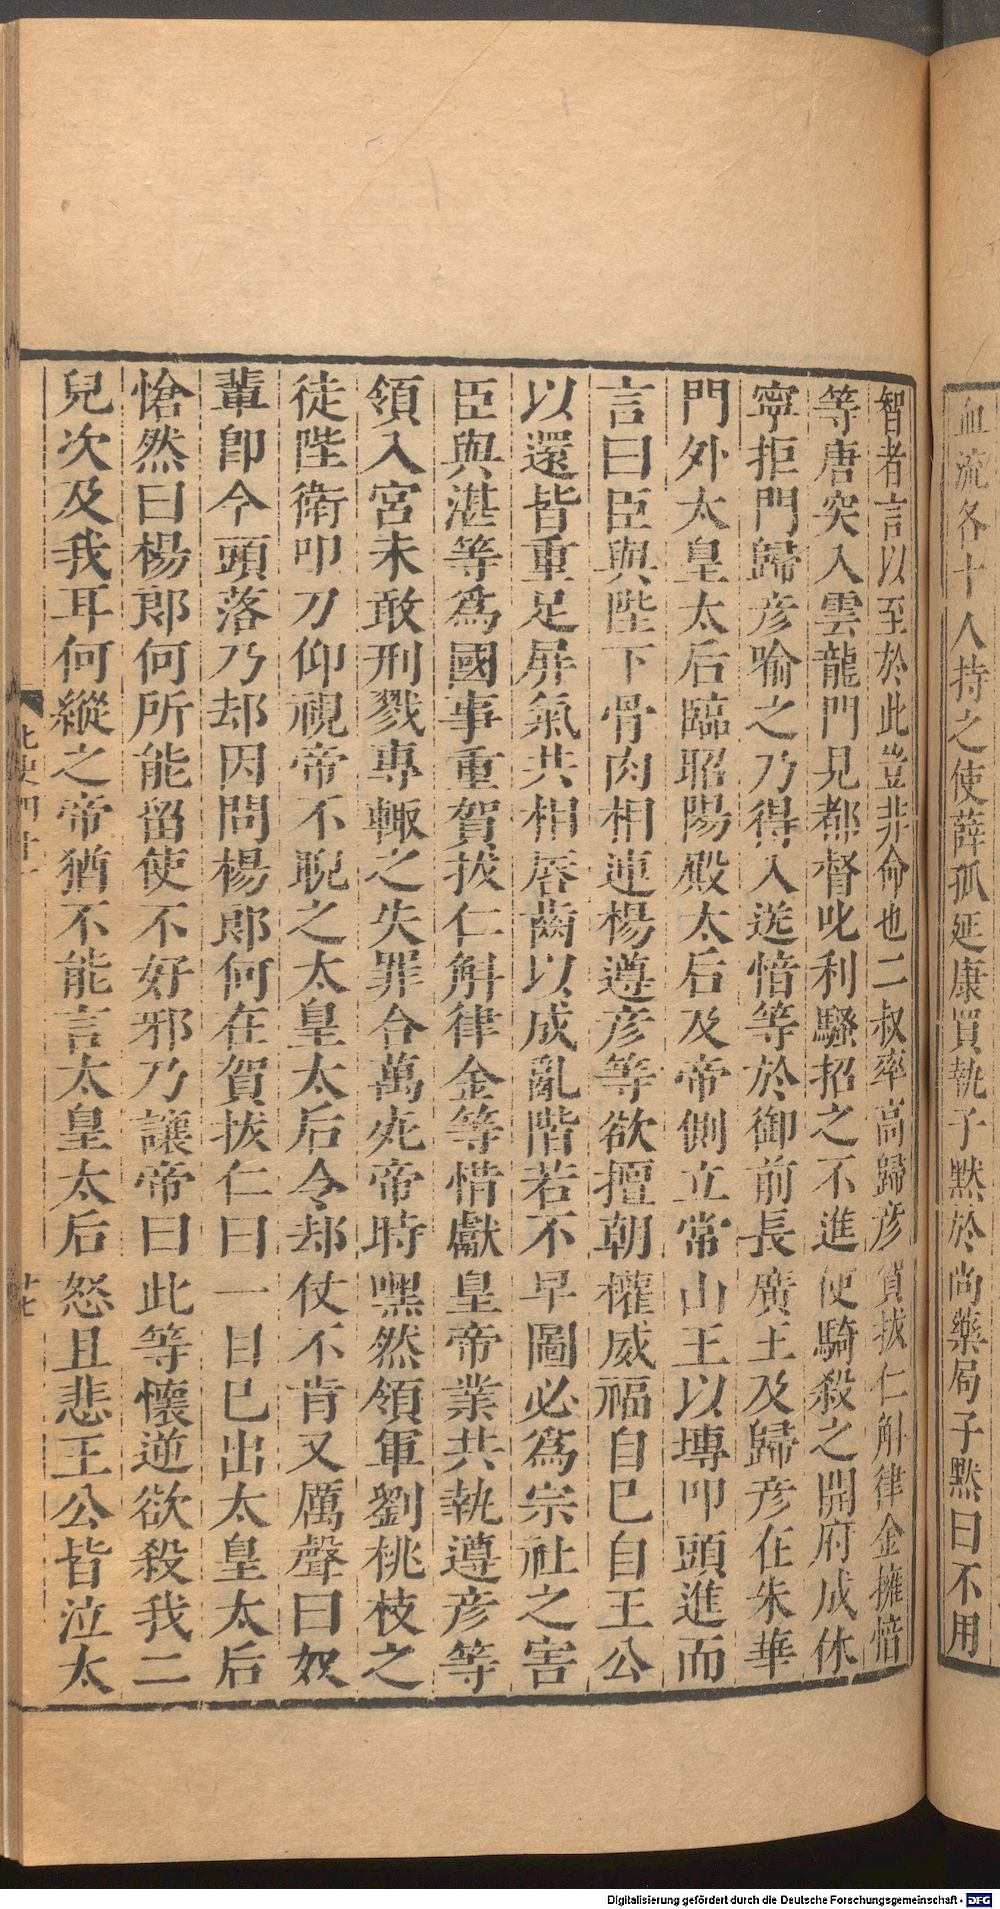 血流各十人持之使薛孤延康買執子默於尚藥局子默曰不用
智者言以至於此豈非命也二叔率高歸彥賀拔仁斛律金擁愔
等唐突入雲龍門見都督叱利騷招之不進便騎殺之開府成休
寧拒門歸彥喻之乃得入送愔等於御前長廣王及歸彥在朱華
門外太皇太后臨昭陽殿太后及帝側立常山王以塼叩頭進而
言曰臣與陛下骨肉相連楊遵彥等欲擅朝權威福自已自王公
以還皆重足屏氣共相唇齒以成亂階若不早圖必為宗社之害
臣與湛等為國事重賀拔仁斛律金等惜獻皇帝業共執遵彥等
領入宮未敢刑戮專輙之失罪合萬死帝時嘿然領軍劉桃枝之
徒陛衛叩刀仰視帝不睨之太皇太后令却仗不肯又厲聲曰奴
輩即今頭落乃却因問楊郎何在賀拔仁曰一目已出太皇太后
愴然曰楊郎何所能留使不好邪乃讓帝曰此等懷逆欲殺我二
兒次及我耳何縱之帝猶不能言太皇太后怒且悲王公皆泣太
北史四十一
廿七
Digitalisierung gefördert durch die Deutsche Forschungsgemeinschaft - DFG